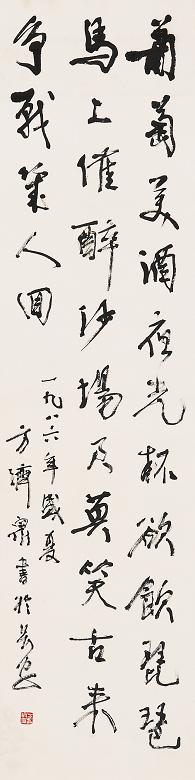 葡萄美酒夜光杯欲飲琵琶
馬上催醉沙場君莫笑古来
争战幾人回
一九八六年盛夏
方濟衆書於長安